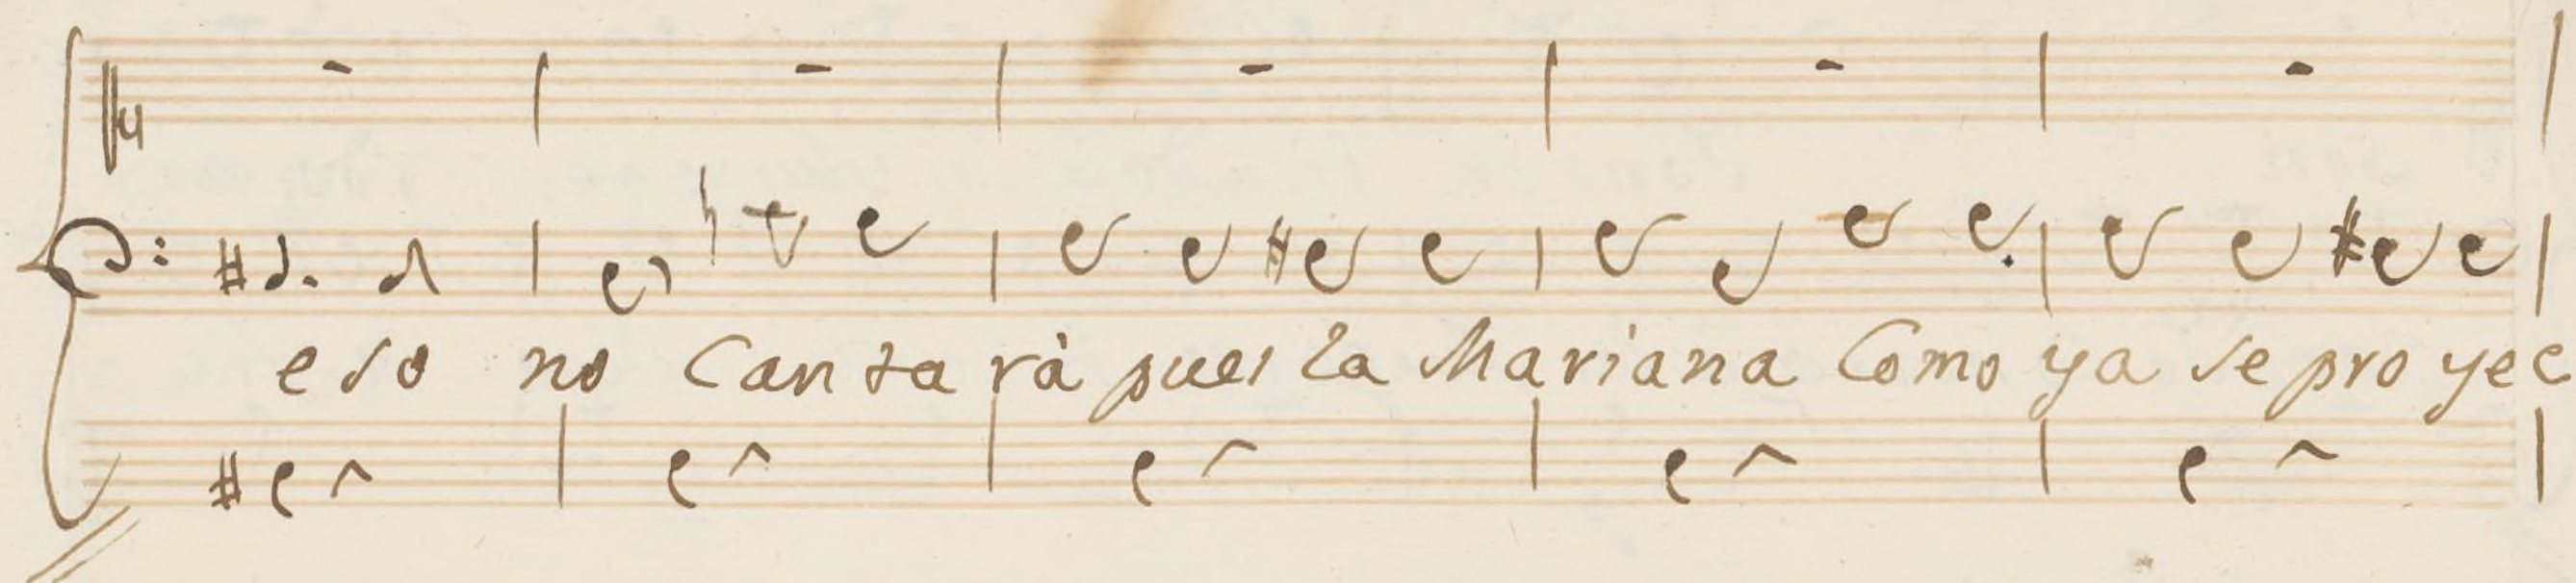 eso no Cantarà pues la Mariana Como ya se proyec